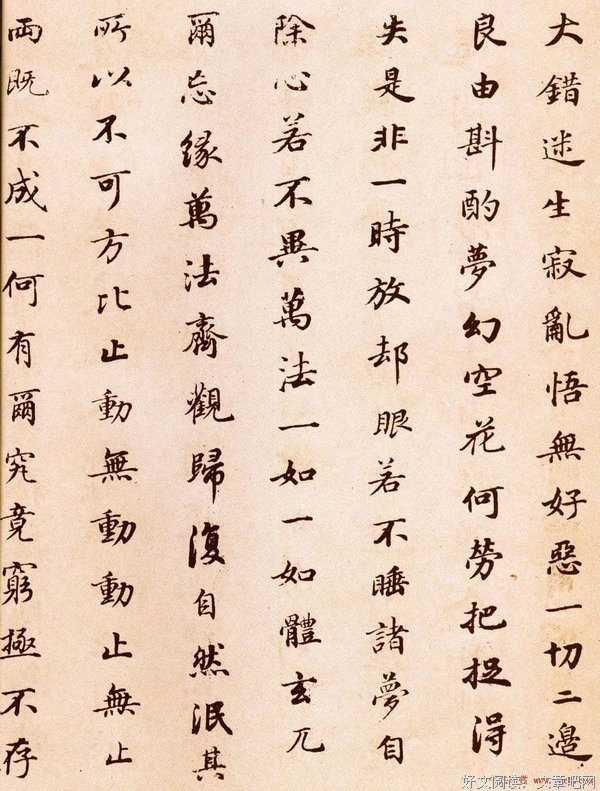 大錯迷生寂亂悟無好惡一切二邊
良由斟酌夢幻空花何勞把捉得
失是非一時放却眼若不睡諸夢自
除心若不異萬法一如一如體玄兀
爾忘緣萬法齊觀歸復自然泯其
所以不可方比止動無動動止無止
兩既不成一何有爾究竟窮極不存
好文阅读：文章吧网